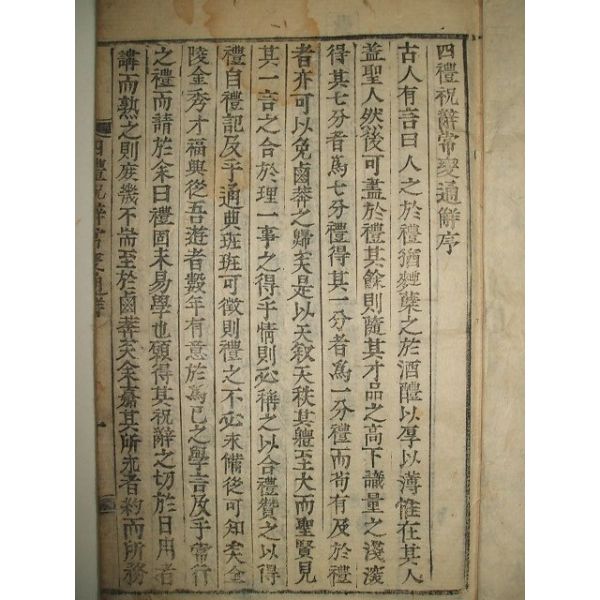 四禮祝辭常變通解序
古人有言曰人之於禮猶麯糵之於酒醴以厚以薄惟在其人
盖聖人然後可盡於禮其餘則隨其才品之高下識量之淺深
得其七分者爲七分禮得其一分者爲一分禮而苟有及於禮
者亦可以免鹵莽之歸矣是以天叙天秩其軆至大而聖賢見
其一言之合於理一事之得乎情則必稱之以合禮贊之以得
禮自禮記及乎通典班班可徵則禮之不必求備從可知矣金
陵金秀才福興從吾遊者數年有意於爲己之學言及乎常行
之禮而請於余曰禮固未易學也願得其祝辭之切於日用者
講而熟之則庶幾不耑至於鹵莽矣余嘉其所求者約而所務
四禮祝辭常變通解 一